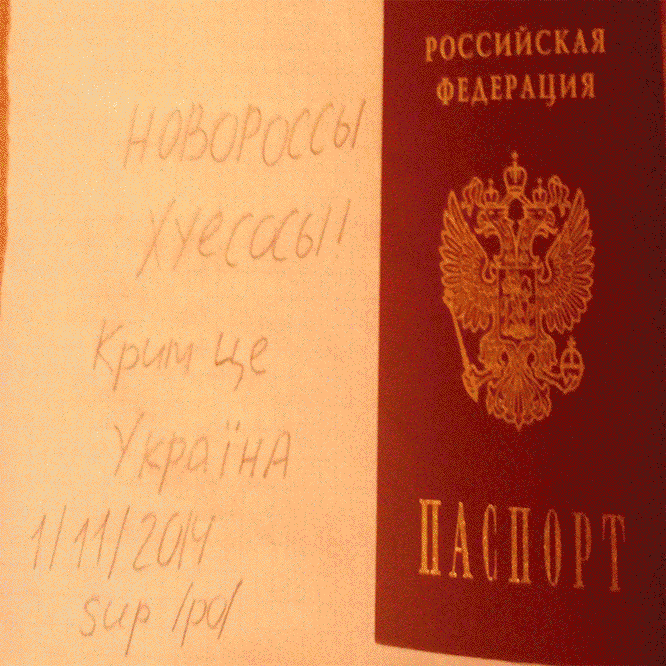 НОВОРОССЫ
ХУЕСОСЫ!
Крим це
Україна
1/11/2014
sup /po/
РОССИЙСКАЯ
ФЕДЕРАЦИЯ
ПАСПОРТ